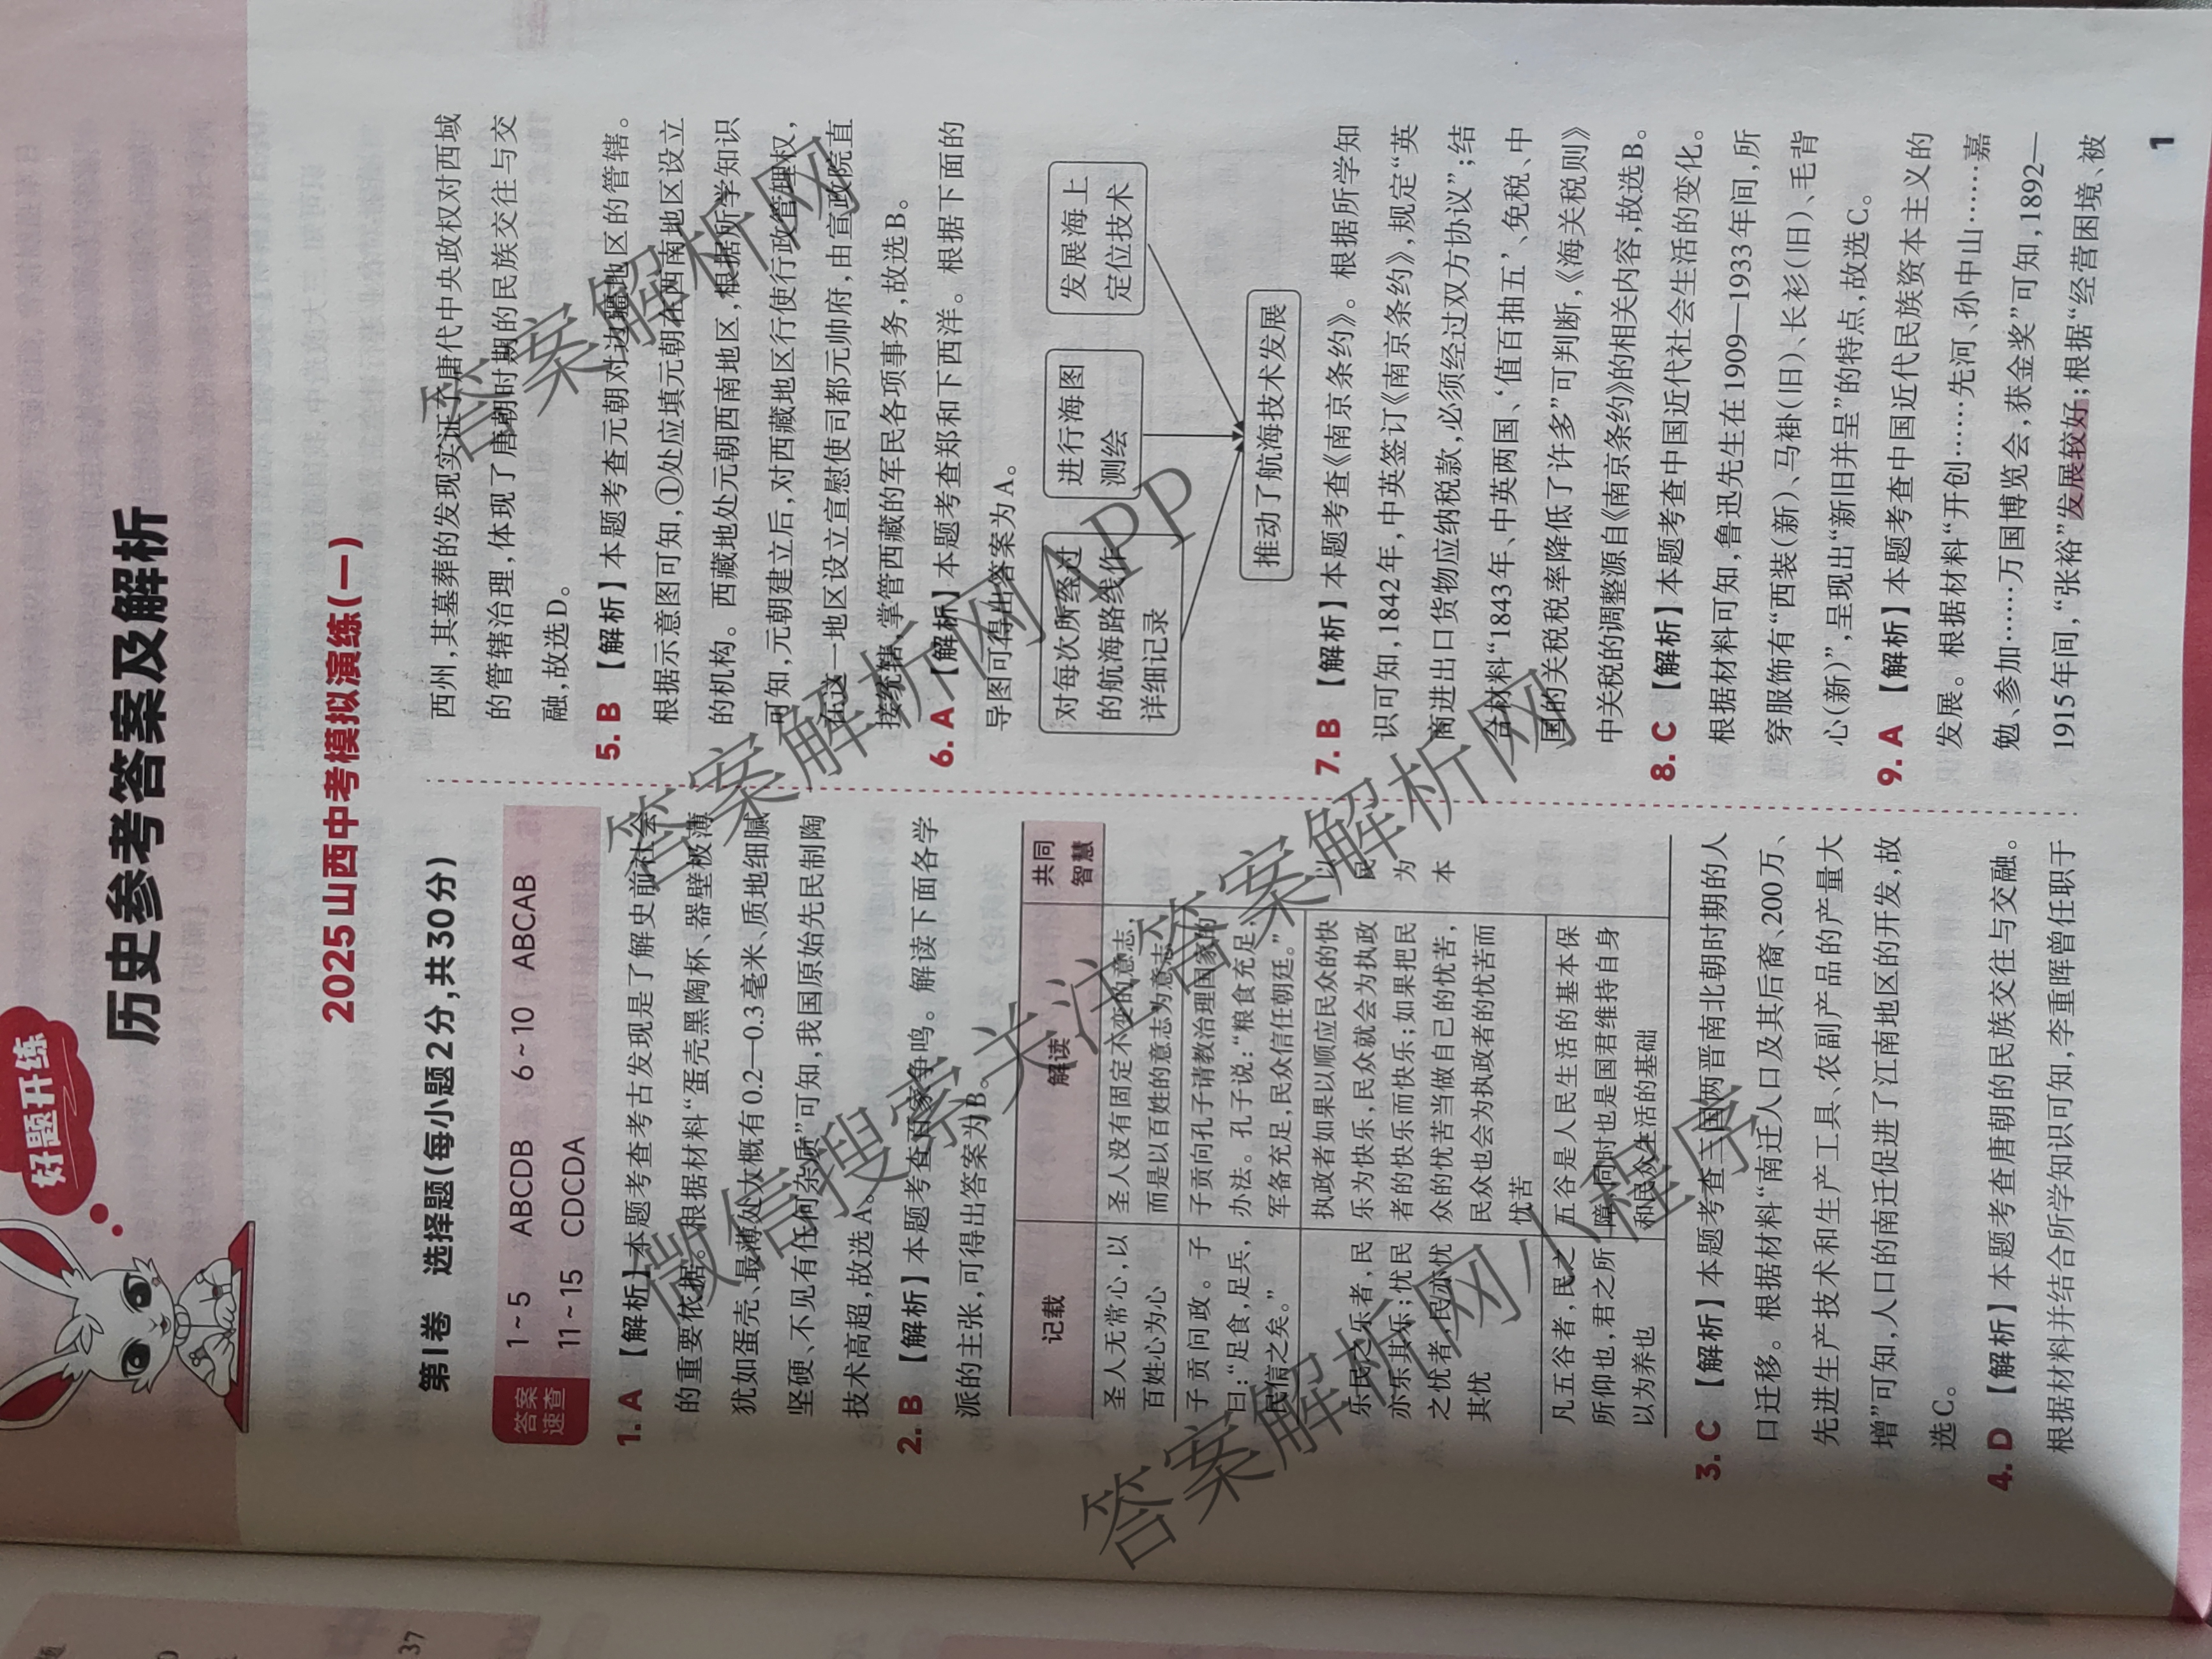 好题开练
历史参考答案及解析
2025山西中考模拟演练(一)
第Ⅰ卷 选择题(每小题2分,共30分)
答案速查
1~5 ABCDB 6~10 ABCAB
11~15 CDCDA
1. A 【解析】本题考查考古发现是了解史前社会
的重要依据。根据材料“蛋壳黑陶杯、器壁极薄
犹如蛋壳、最薄处大概有0.2—0.3毫米、质地细腻
坚硬、不见有任何杂质”可知,我国原始先民制陶
技术高超,故选A。
2. B 【解析】本题考查百家争鸣。解读下面各学
派的主张,可得出答案为B。
记载 解读 共同智慧
圣人无常心,以
百姓心为心
圣人没有固定不变的意志,
而是以百姓的意志为意志
子贡问政。子
曰:“足食,足兵,
民信之矣。”
子贡向孔子请教治理国家的
办法。孔子说:“粮食充足,
军备充足,民众信任朝廷。”
乐民之乐者,民
亦乐其乐;忧民
之忧者,民亦忧
其忧
执政者如果以顺应民众的快
乐为快乐,民众就会为执政
者的快乐而快乐;如果把民
众的忧苦当做自己的忧苦,
民众也会为执政者的忧苦而
忧苦
凡五谷者,民之
所仰也,君之所
以为养也
五谷是人民生活的基本保
障,同时也是国君维持自身
和民众生活的基础
以
民
为
本
3. C 【解析】本题考查三国两晋南北朝时期的人
口迁移。根据材料“南迁人口及其后裔、200万、
先进生产技术和生产工具、农副产品的产量大
增”可知,人口的南迁促进了江南地区的开发,故
选C。
4. D 【解析】本题考查唐朝的民族交往与交融。
根据材料并结合所学知识可知,李重晖曾任职于
西州,其墓葬的发现实证了唐代中央政权对西域
的管辖治理,体现了唐朝时期的民族交往与交
融,故选D。
5. B 【解析】本题考查元朝对边疆地区的管辖。
根据示意图可知,①处应填元朝在西南地区设立
的机构。西藏地处元朝西南地区,根据所学知识
可知,元朝建立后,对西藏地区行使行政管理权,
在这一地区设立宣慰使司都元帅府,由宣政院直
接统辖,掌管西藏的军民各项事务,故选B。
6. A 【解析】本题考查郑和下西洋。根据下面的
导图可得出答案为A。
对每次所经过
的航海路线作
详细记录
进行海图
测绘
发展海上
定位技术
推动了航海技术发展
7. B 【解析】本题考查《南京条约》。根据所学知
识可知,1842年,中英签订《南京条约》,规定“英
商进出口货物应纳税款,必须经过双方协议”;结
合材料“1843年、中英两国、‘值百抽五’、免税、中
国的关税税率降低了许多”可判断,《海关税则》
中关税的调整源自《南京条约》的相关内容,故选B。
8. C 【解析】本题考查中国近代社会生活的变化。
根据材料可知,鲁迅先生在1909—1933年间,所
穿服饰有“西装(新)、马褂(旧)、长衫(旧)、毛背
心(新)”,呈现出“新旧并呈”的特点,故选C。
9. A 【解析】本题考查中国近代民族资本主义的
发展。根据材料“开创……先河、孙中山……嘉
勉、参加……万国博览会,获金奖”可知,1892—
1915年间,“张裕”发展较好;根据“经营困境、被
1
37
答案解析网
答案解析网APP
微信搜索关注答案解析网
答案解析网小程序